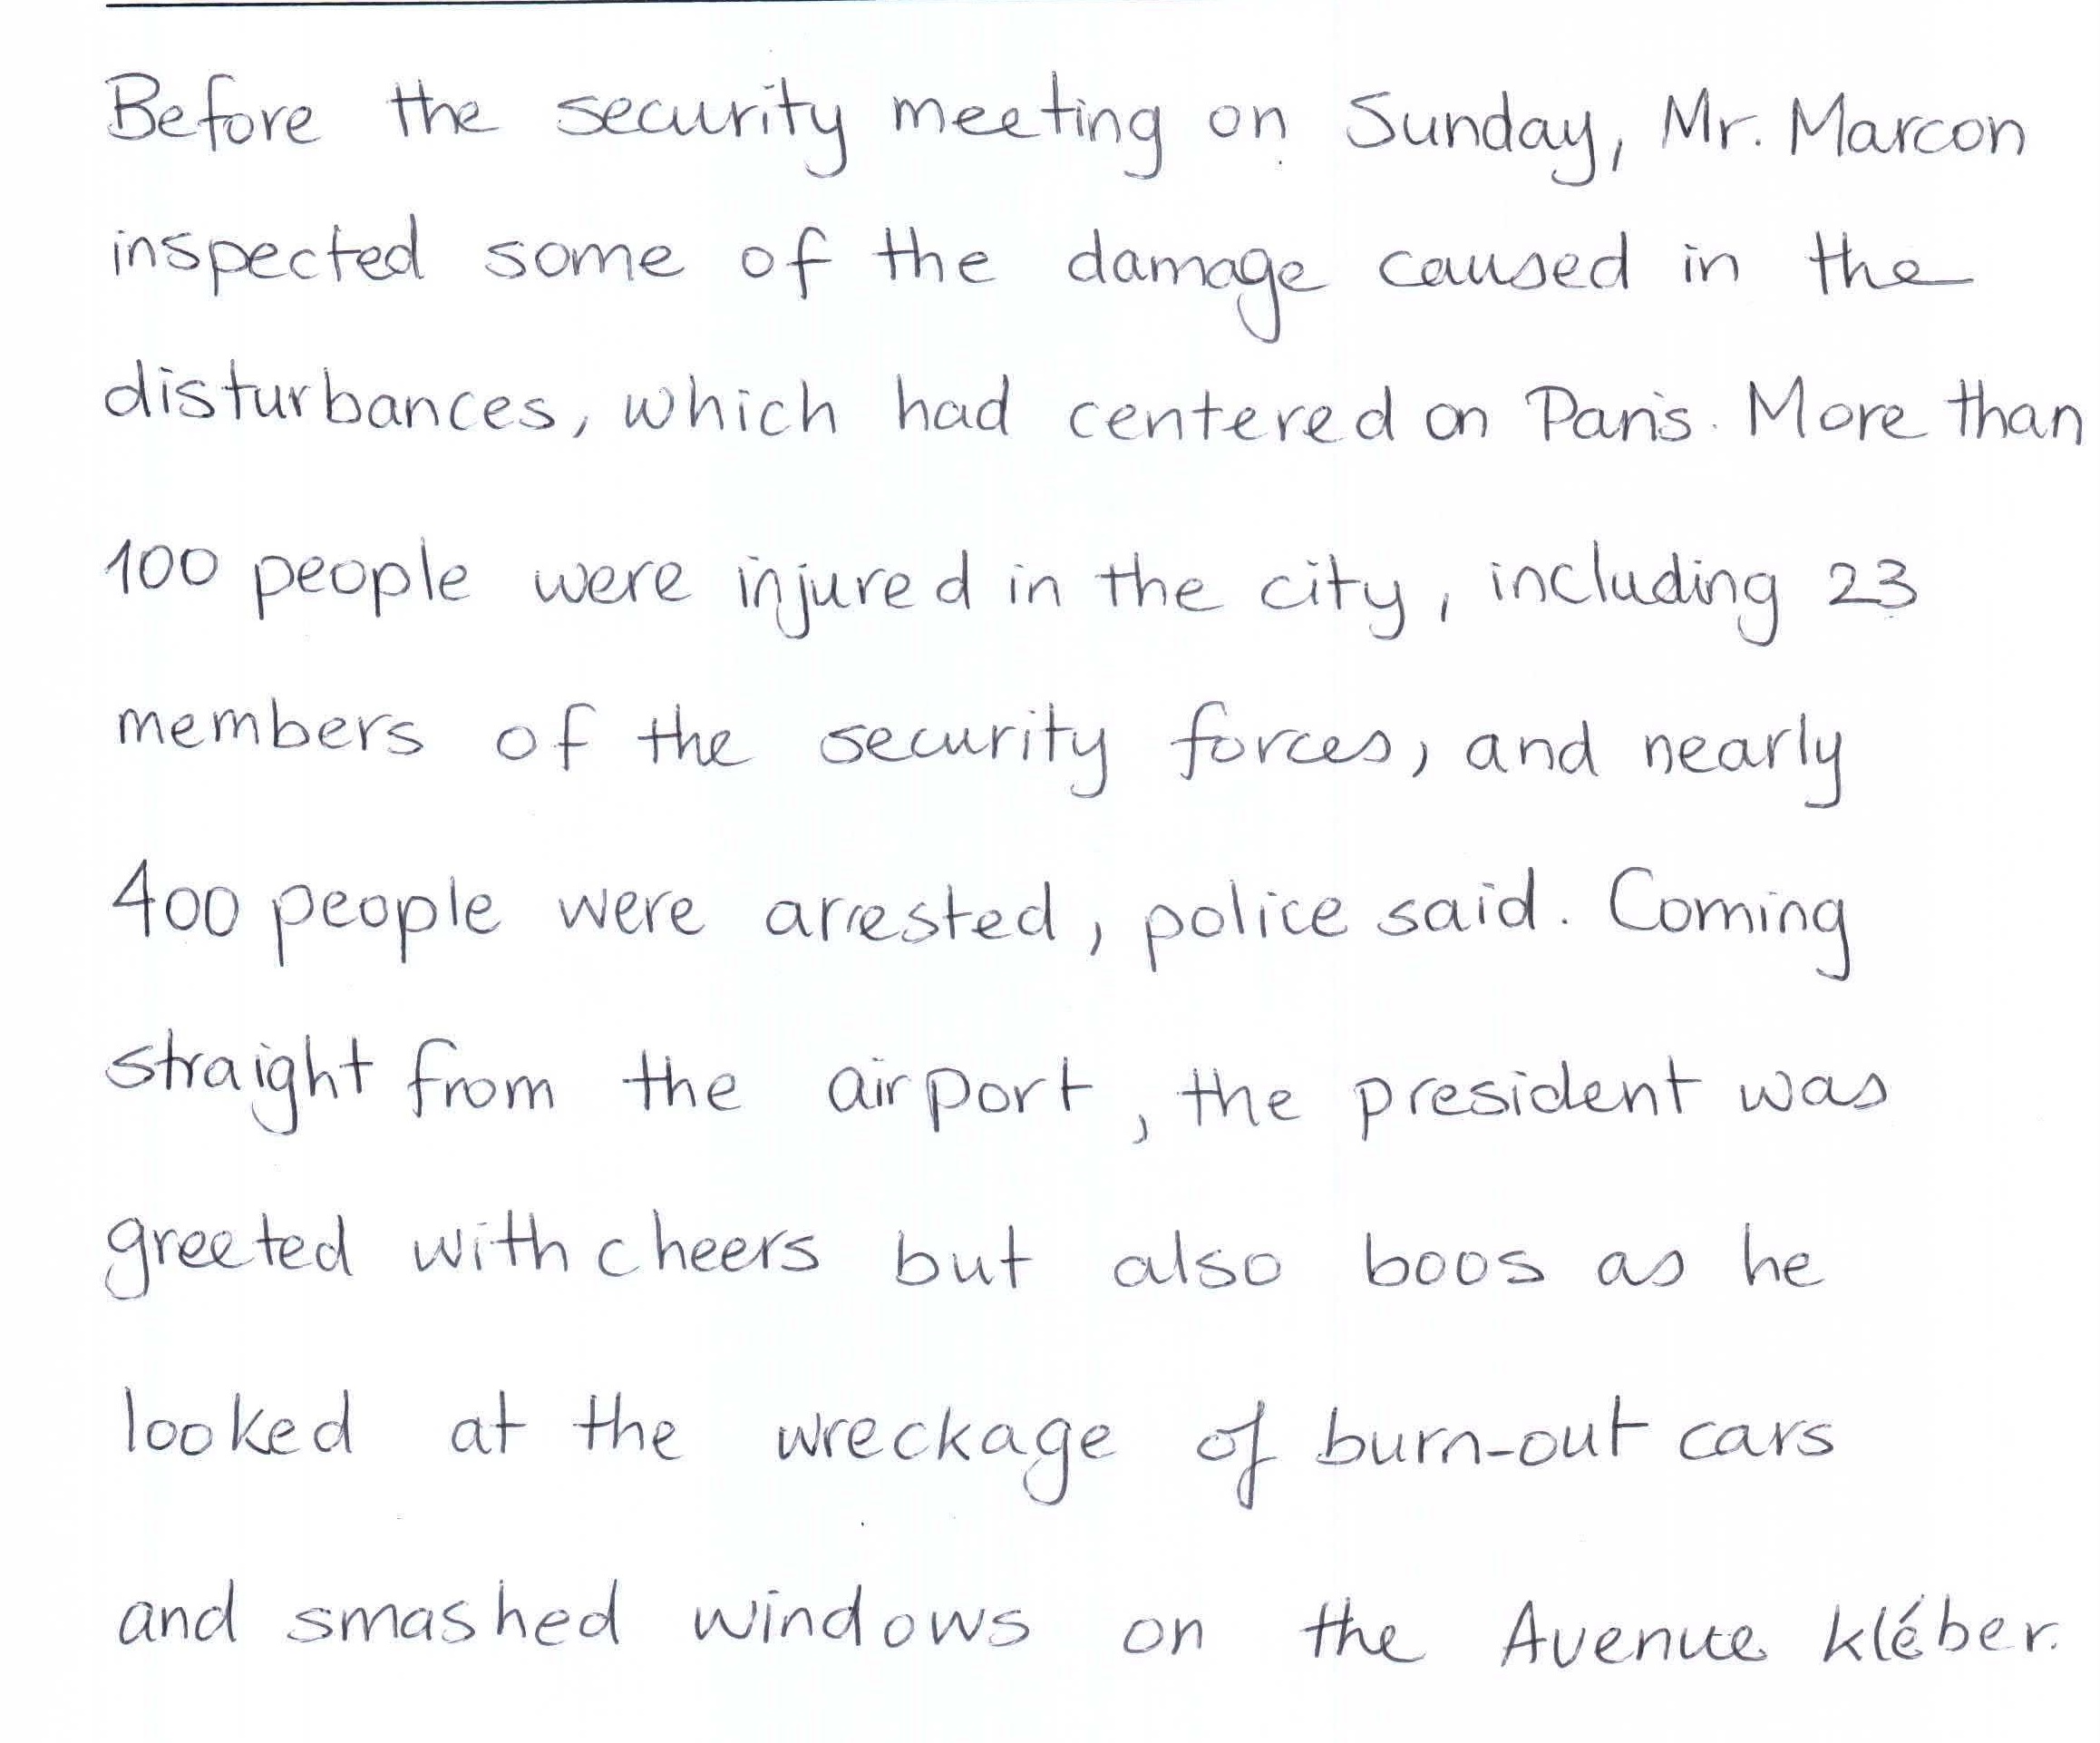 Before the security meeting on Sunday, Mr. Marcon
inspected some of the damage caused in the
disturbances, which had centered on Paris. More than
100 people were injured in the city, including 23
members of the security forces, and nearly
400 people were arrested, police said. Coming
straight from the airport, the president was
greeted with cheers but also boos as he
looked at the wreckage of burn-out cars
and smashed windows on the Avenue kléber.